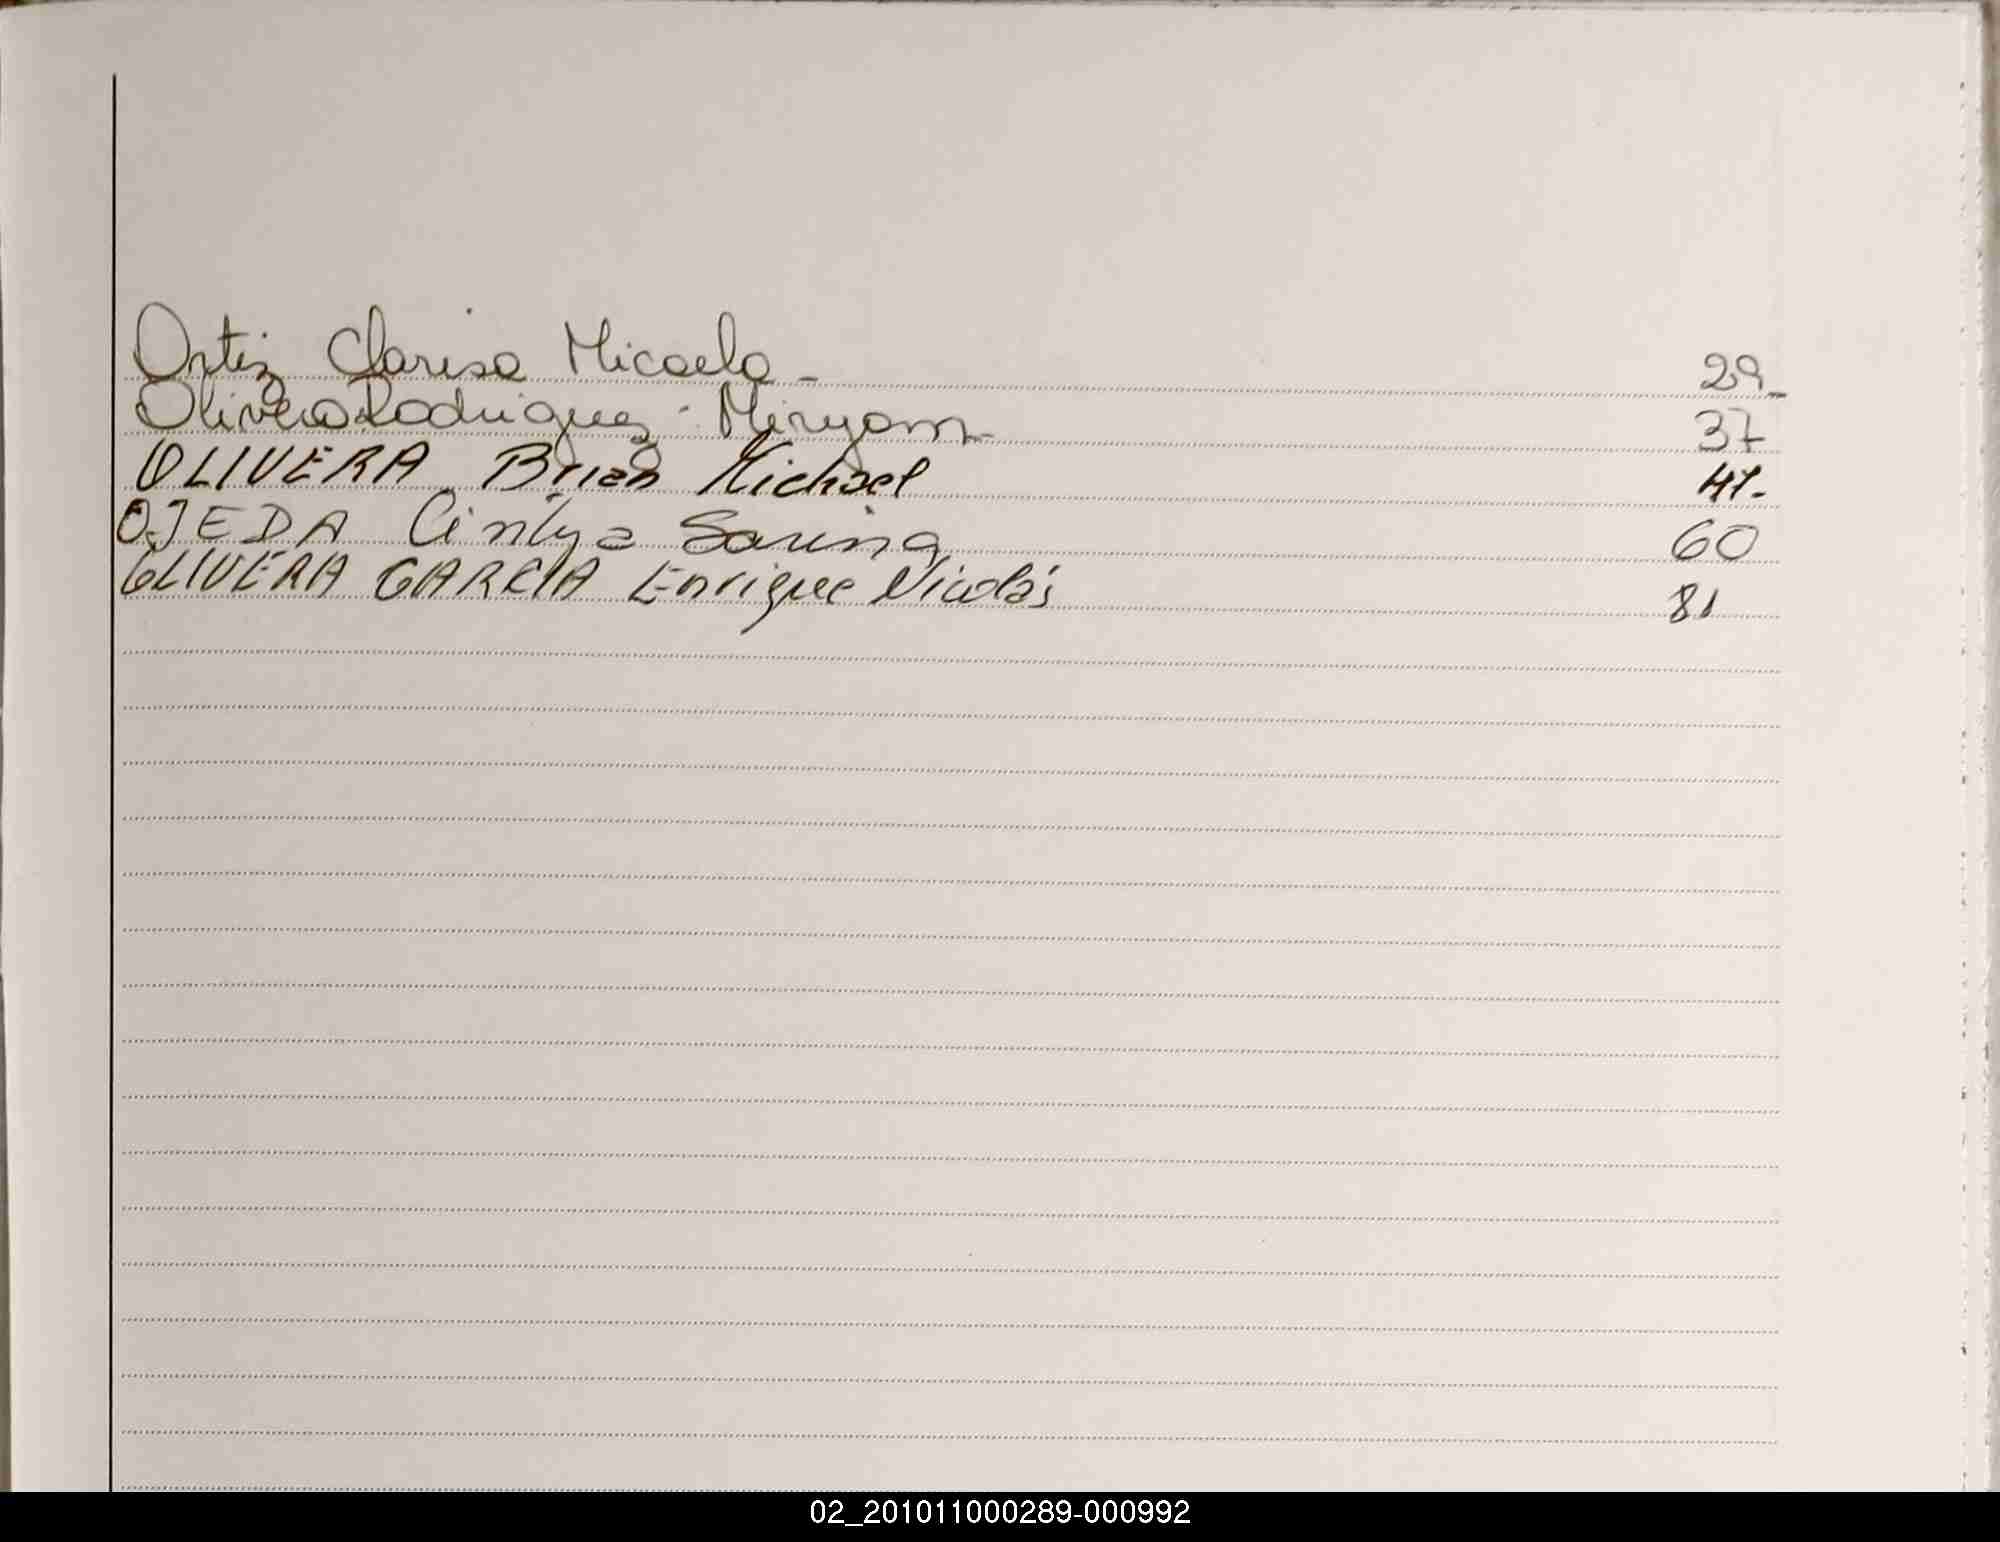 Ortiz Clarisa Micaela - 29_
Olivera Rodriguez - Miryam - 37
OLIVERA Brian Michael 41.
OJEDA Cintya Sarina 60
OLIVERA GARCIA Enrique Nicolás 81
02_201011000289-000992